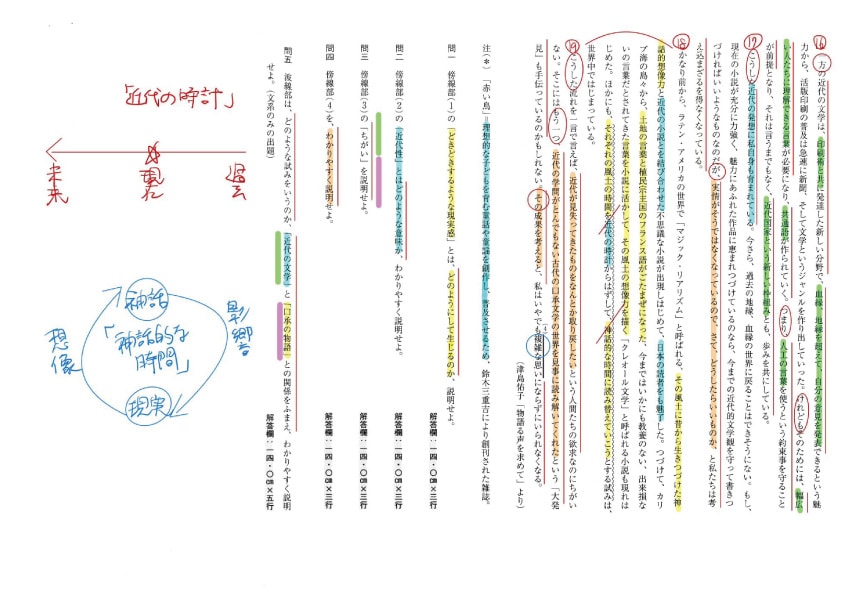 ⑯一方の近代の文学は、印刷術と共に発達した新しい分野で、血縁、地縁を超えて、自分の意見を発表できるという魅
力から、活版印刷の普及は急速に新聞、そして文学というジャンルを作り出していった。けれどもそのためには、幅広
い人たちに理解できる言葉が必要になり、共通語が作られていく。つまり、人工の言葉を使うという約束事を守ること
が前提となり、それは言うまでもなく、近代国家という新しい枠組みとも、歩みを共にしている。
⑰こうした近代の発想に私自身も育まれている。今さら、過去の地縁、血縁の世界に戻ることはできそうにない。もし、
現在の小説が充分に力強く、魅力にあふれた作品に恵まれつづけているのなら、今までの近代的文学観を守って書きつ
づければいいようなものなのだが、実情がそうではなくなっているので、さて、どうしたらいいものか、と私たちは考
え込まざるを得なくなっている。
⑱かなり前から、ラテン・アメリカの世界で「マジック・リアリズム」と呼ばれる、その風土に昔から生きつづけた神
話的想像力と近代の小説とを結び合わせた不思議な小説が出現しはじめて、日本の読者をも魅了した。つづけて、カリ
ブ海の島々から、土地の言葉と植民宗主国のフランス語がごたまぜになった、今まではいかにも教養のない、出来損な
いの言葉だとされてきた言葉を小説に活かして、その風土の想像力を描く「クレオール文学」と呼ばれる小説も現れは
じめた。ほかにも、それぞれの風土の時間を近代の時計からはずして、神話的な時間に読み替えていこうとする試みは、
世界中ではじまっている。
⑲こうした流れを一言で言えば、近代が見失ってきたものをなんとか取り戻したいという人間たちの欲求なのにちがい
ない。そこにはもう一つ、近代の学問がとんでもない古代の口承文学の世界を見事に読み解いてくれたという「大発
見」も手伝っているのかもしれない。その成果を考えると、私はいやでも複雑な思いにならずにいられなくなる。
(4)
(津島佑子「物語る声を求めて」より)
注(*) 「赤い鳥」=理想的な子どもを育む童話や童謡を創作し、普及させるため、鈴木三重吉により創刊された雑誌。
問一 傍線部(1)の「どきどきするような現実感」とは、どのようにして生じるのか、説明せよ。
解答欄:一四・〇㎝×三行
問二 傍線部(2)の「近代性」とはどのような意味か、わかりやすく説明せよ。
解答欄:一四・〇㎝×三行
問三 傍線部(3)の「ちがい」を説明せよ。
解答欄:一四・〇㎝×三行
問四 傍線部(4)を、わかりやすく説明せよ。
解答欄:一四・〇㎝×三行
問五 波線部は、どのような試みをいうのか、「近代の文学」と「口承の物語」との関係をふまえ、わかりやすく説明
せよ。(文系のみの出題)
解答欄:一四・〇㎝×五行
「近代の時計」
過去
現在
未来
影響
神話
「神話的な
時間」
現実
想像